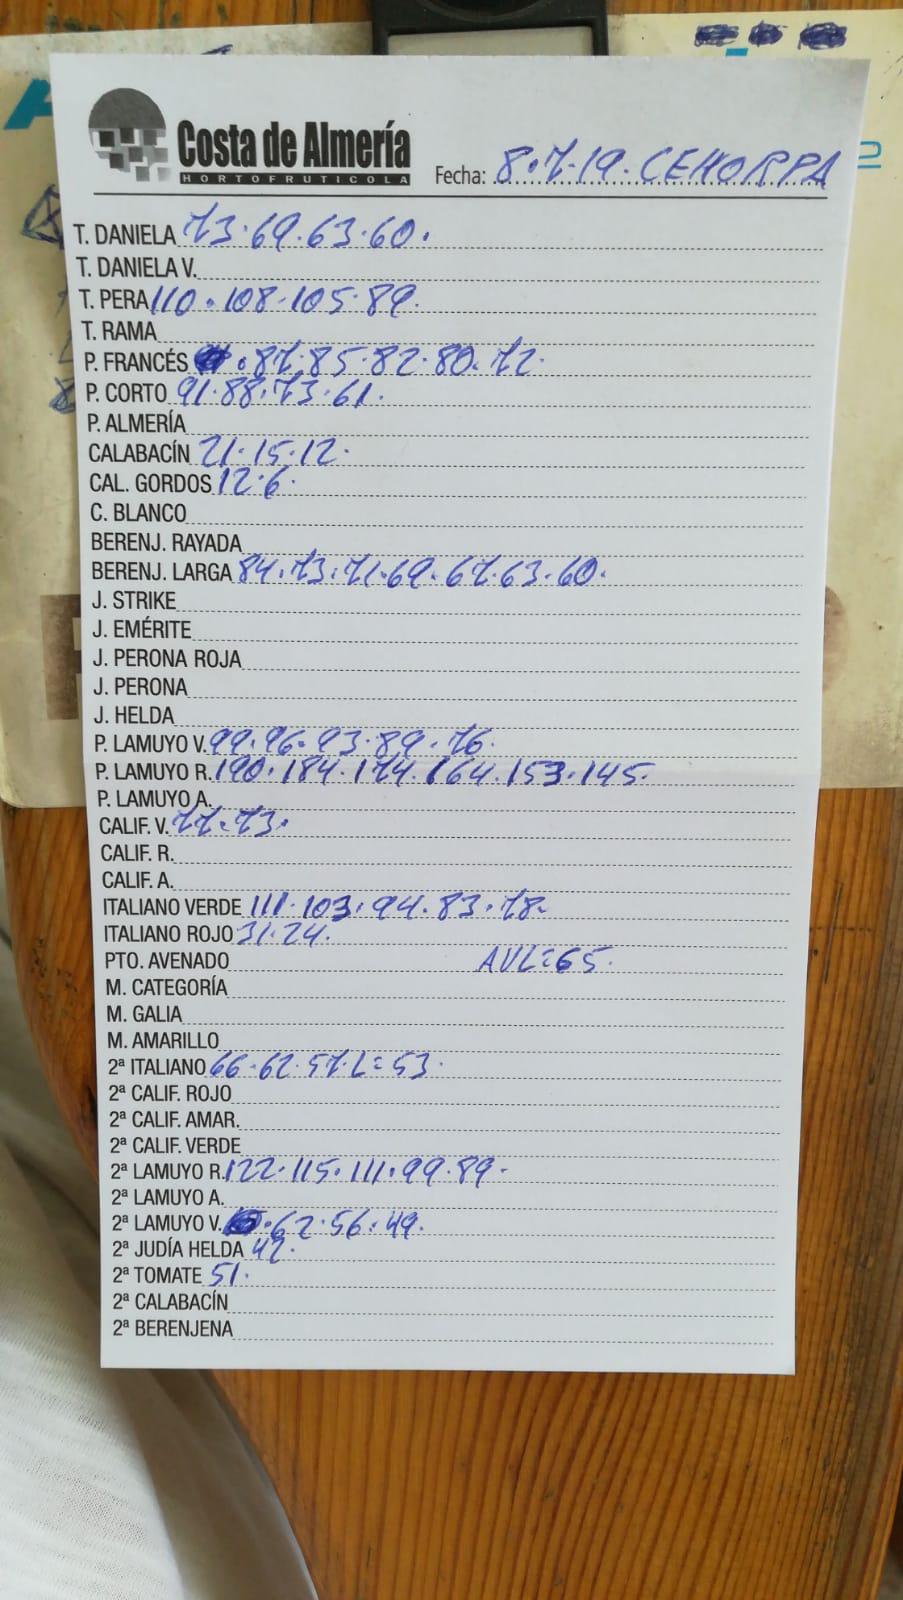 Costa de Almería
HORTOFRUTICOLA
Fecha: 8.7.19. CEHORPA
T. DANIELA 73.69.63.60.
T. DANIELA V.
T. PERA 110.108.105.89.
T. RAMA
P. FRANCÉS .87.85.82.80.72.
P. CORTO 91.88.73.61.
P. ALMERÍA
CALABACÍN 21.15.12.
CAL. GORDOS 12.6.
C. BLANCO
BERENJ. RAYADA
BERENJ. LARGA 84.73.71.69.67.63.60.
J. STRIKE
J. EMÉRITE
J. PERONA ROJA
J. PERONA
J. HELDA
P. LAMUYO V. 99.96.93.89.76.
P. LAMUYO R. 190.184.174.164.153.145.
P. LAMUYO A.
CALIF. V. 77.73.
CALIF. R.
CALIF. A.
ITALIANO VERDE 111.103.94.83.78.
ITALIANO ROJO 31.24.
PTO. AVENADO AVL=65.
M. CATEGORÍA
M. GALIA
M. AMARILLO
2ª ITALIANO 66.62.57.L=53.
2ª CALIF. ROJO
2ª CALIF. AMAR.
2ª CALIF. VERDE
2ª LAMUYO R. 122.115.111.99.89.
2ª LAMUYO A.
2ª LAMUYO V. .62.56.49.
2ª JUDÍA HELDA 42.
2ª TOMATE 51.
2ª CALABACÍN
2ª BERENJENA